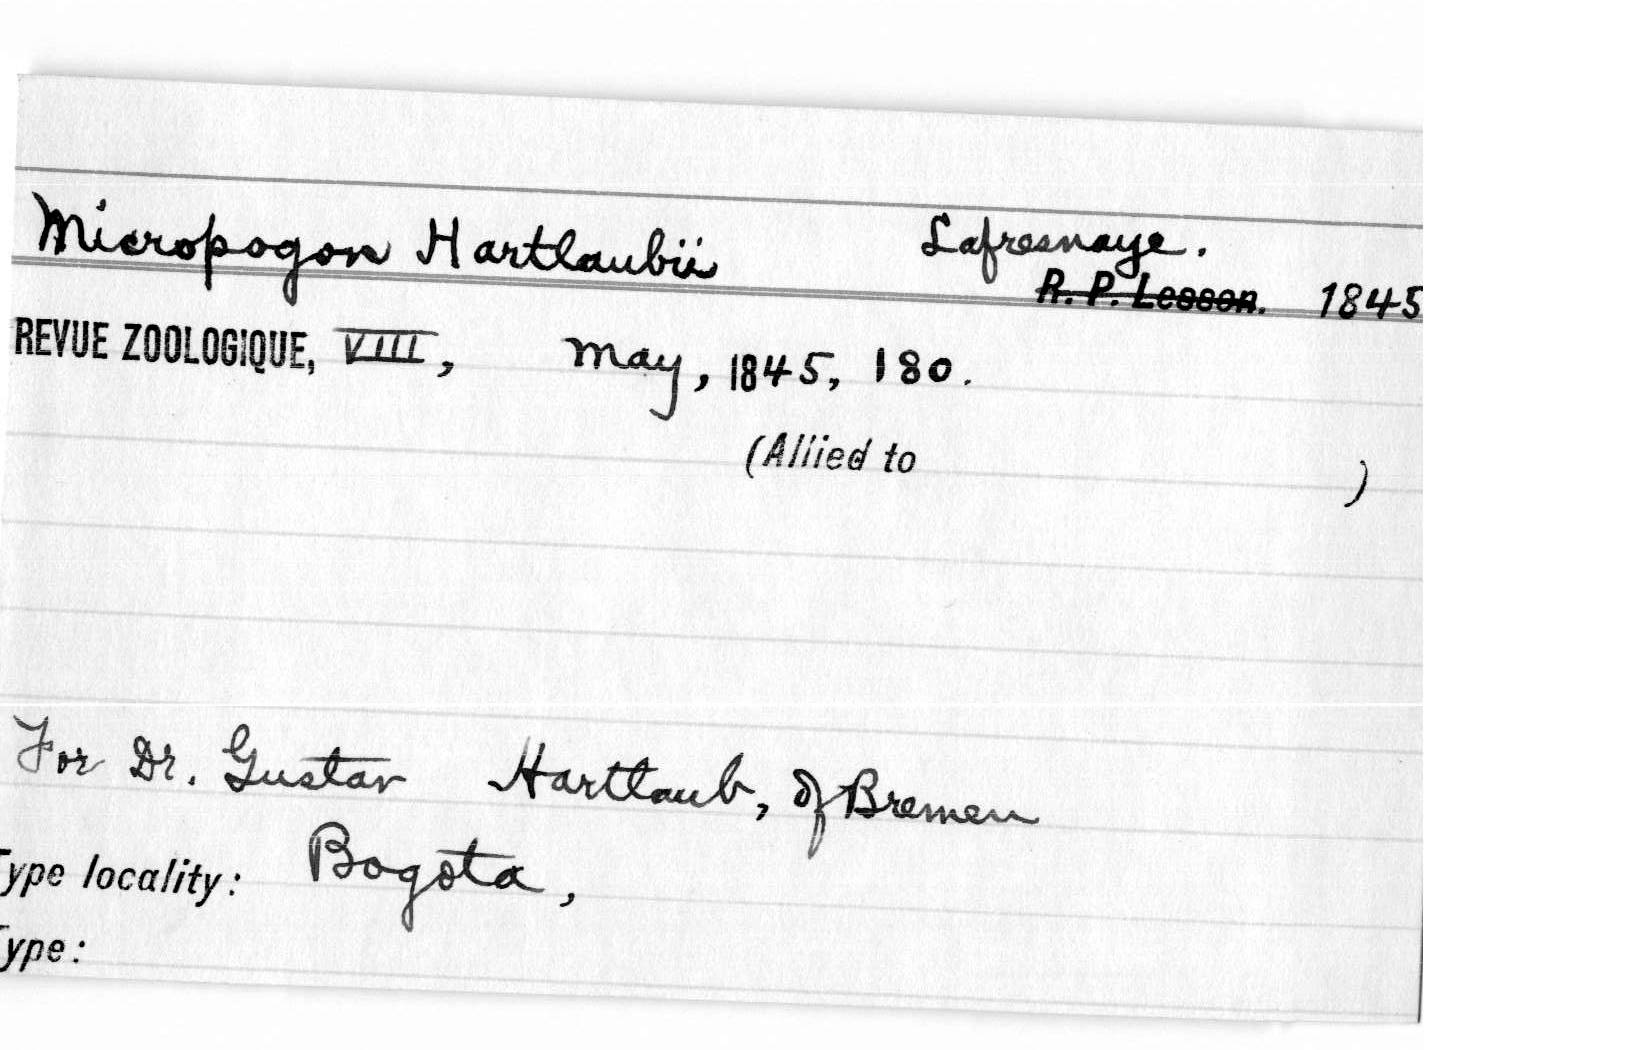 Micropogon Hartlaubii Lafresnaye.
R. P. Lesson. 1845
REVUE ZOOLOGIQUE, VIII, May, 1845, 180.
(Allied to )
For Dr. Gustav Hartlaub, of Bremen
Type locality: Bogota,
Type: